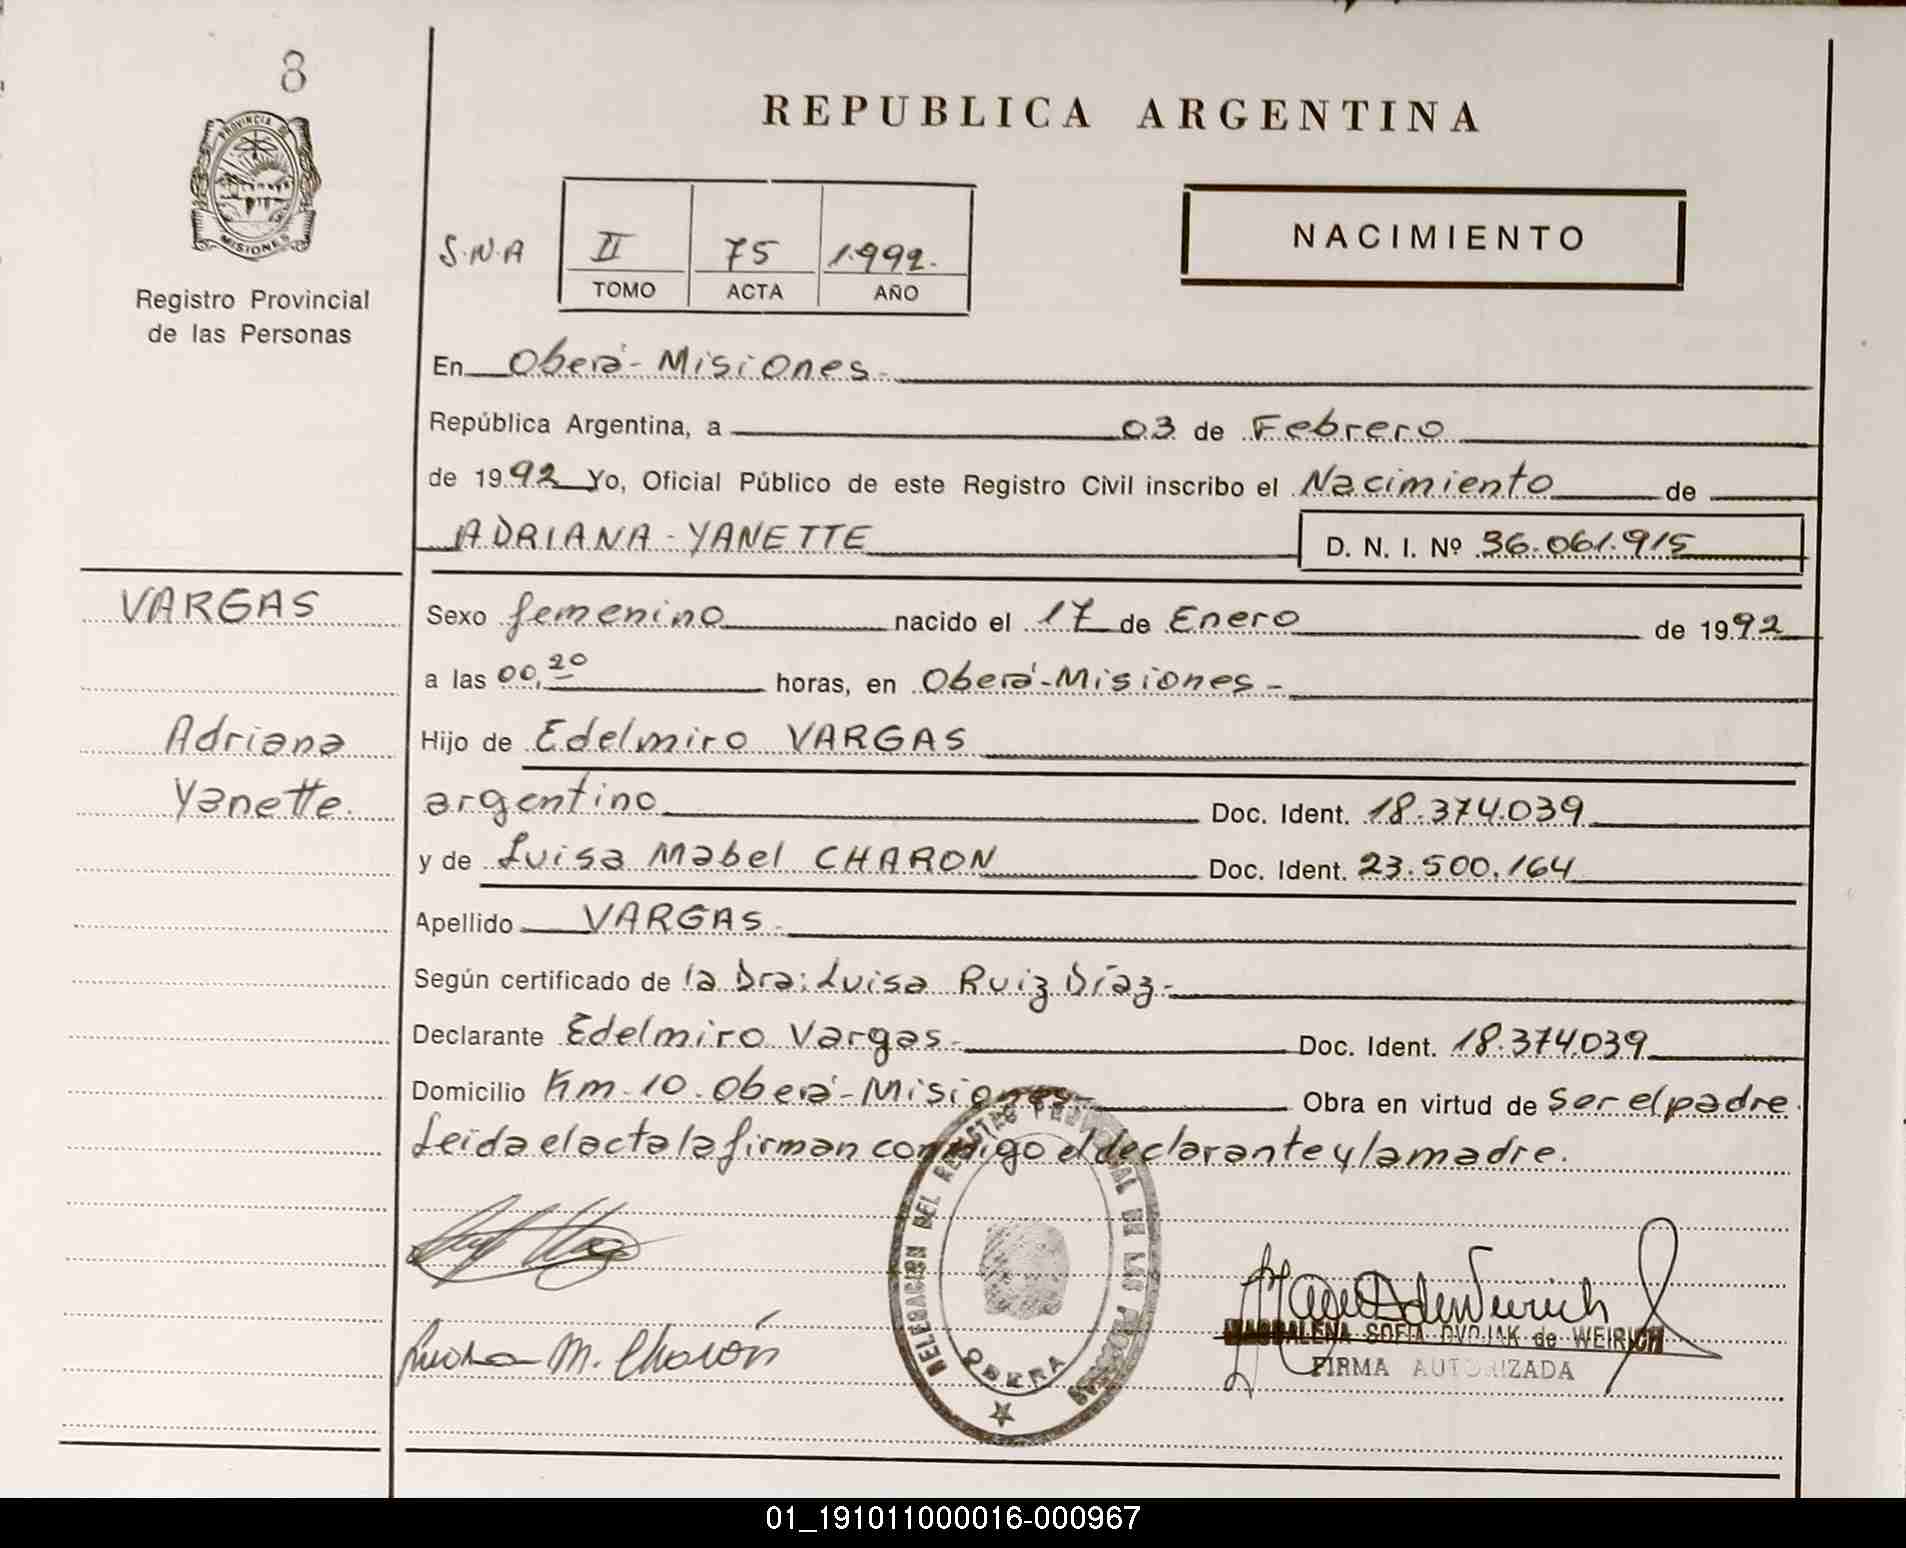 8
PROVINCIA DE
MISIONES
Registro Provincial
de las Personas
REPUBLICA ARGENTINA
S.N.A
II 75 1.992.
TOMO ACTA AÑO
NACIMIENTO
En Oberá - Misiones.
República Argentina, a 03 de Febrero
de 1992 Yo, Oficial Público de este Registro Civil inscribo el Nacimiento de
ADRIANA - YANETTE D. N. I. Nº 36.061.915
VARGAS
Adriana
Yanette.
Sexo femenino nacido el 17 de Enero de 1992
a las 00,20 horas, en Oberá - Misiones -
Hijo de Edelmiro VARGAS
argentino Doc. Ident. 18.374.039
y de Luisa Mabel CHARON Doc. Ident. 23.500.164
Apellido VARGAS.
Según certificado de la Dra: Luisa Ruiz Díaz -
Declarante Edelmiro Vargas. Doc. Ident. 18.374.039
Domicilio Km. 10. Oberá - Misiones - Obra en virtud de Ser el padre.
Leída el acta la firman conmigo el declarante y la madre.
DELEGACION DEL REGISTRO PROVINCIAL DE LAS
OBERA
M. Charón
MAGDALENA SOFIA DVOJAK de WEIRICH
FIRMA AUTORIZADA
01_191011000016-000967